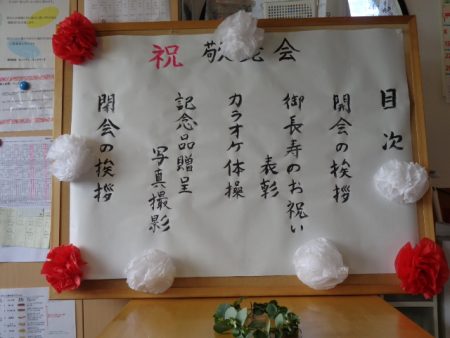 祝 敬老会
目次
開会の挨拶
御長寿のお祝い
表彰
カラオケ体操
記念品贈呈
写真撮影
閉会の挨拶